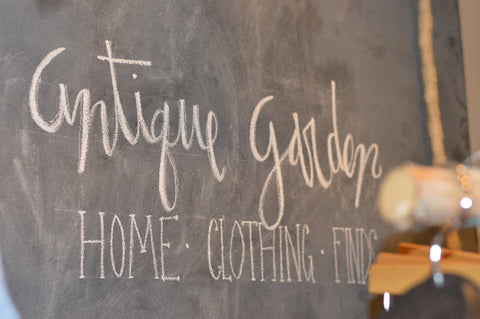 antique Garden
HOME · CLOTHING · FINDS